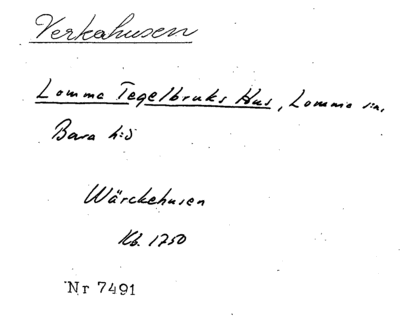 Verkahusen
Lomma Tegelbruks Hus, Lomma sn,
Bara h:d
Wärckehusen
Kb. 1750
Nr 7491